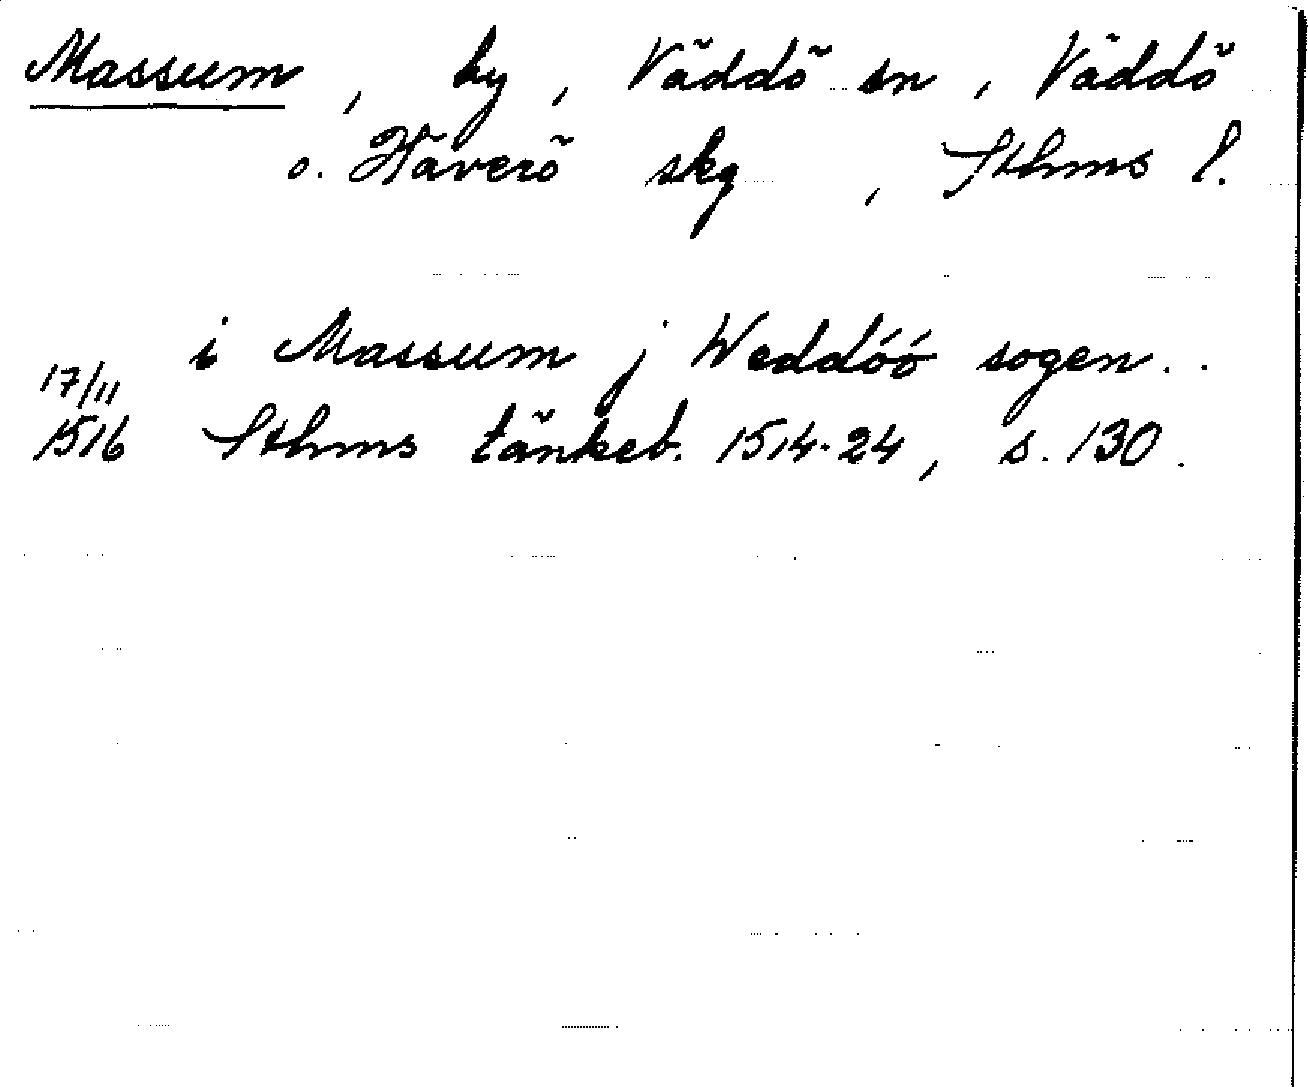 Massum, by, Väddö sn, Väddö
o. Häverö skg, Sthms l.
i Massum j Weddóó sogen..
17/11
1516 Sthms tänkeb. 1514-24, s. 130.